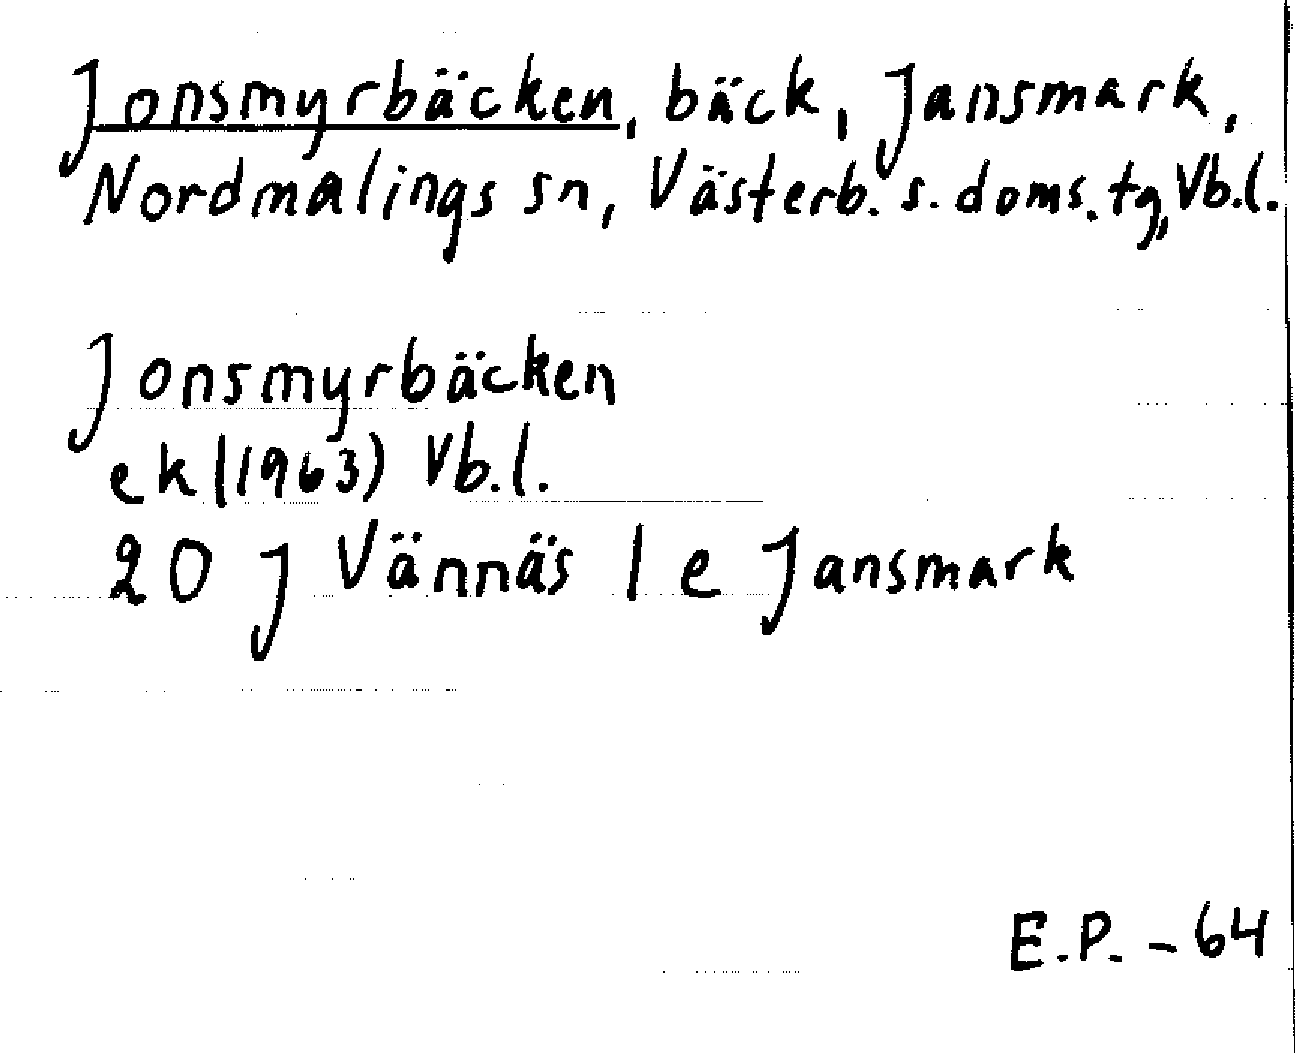 Jonsmyrbäcken, bäck, Jansmark,
Nordmalings sn, Västerb. s. doms. tg, Vb.l.
Jonsmyrbäcken
ek (1963) Vb.l.
20 J Vännäs 1 e Jansmark
E.P. - 64